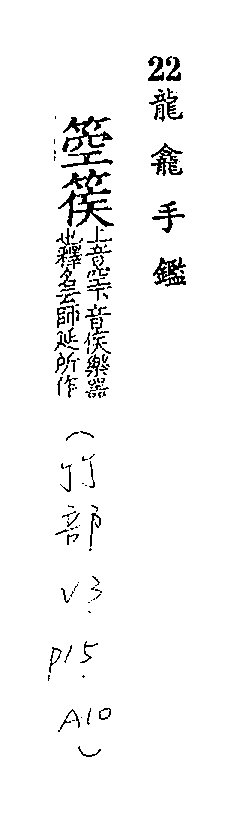 22龍龕手鑑
箜篌上音空下音侯樂器
也釋名云師延所作
(竹部 V3. P15. A10)